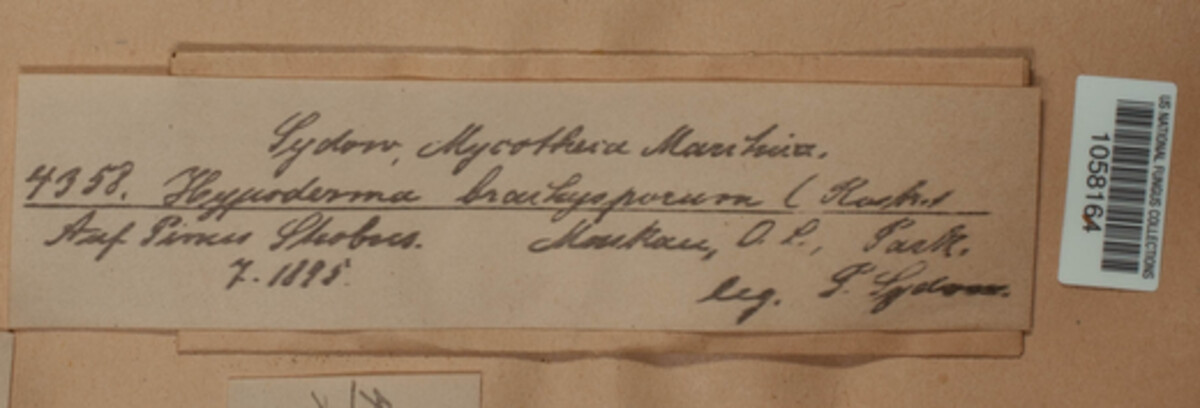 Sydow, Mycotheca Marchica.
4358. Hypoderma brachysporum (Rostr.
Auf Pinus Strobus. Muskau, O. L., Park.
7. 1895.
leg. P. Sydow.
US NATIONAL FUNGUS COLLECTIONS
1058164